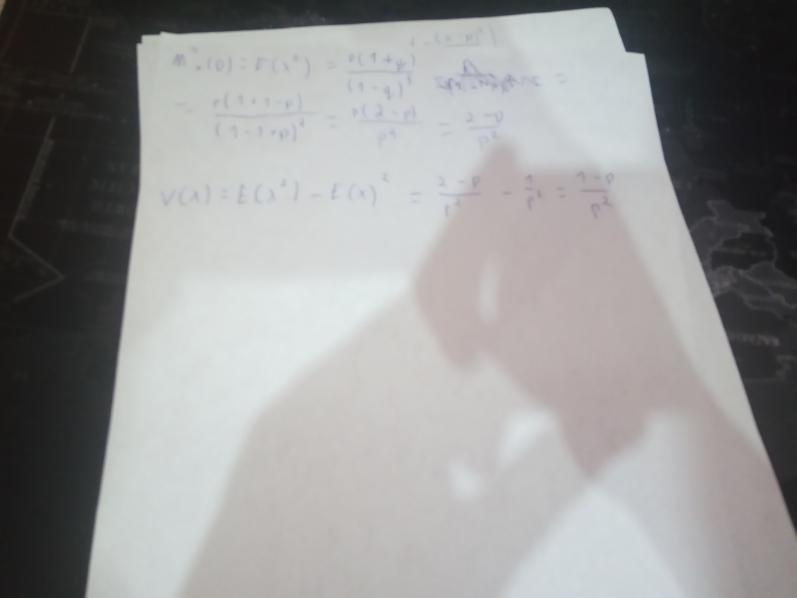 M''x(0) = E(x²) = p(1+q) / (1-q)³ =
= p(1+1-p) / (1-1+p)³ = p(2-p) / p³ = 2-p / p²
V(x) = E(x²) - E(x)² = 2-p / p² - 1 / p² = 1-p / p²